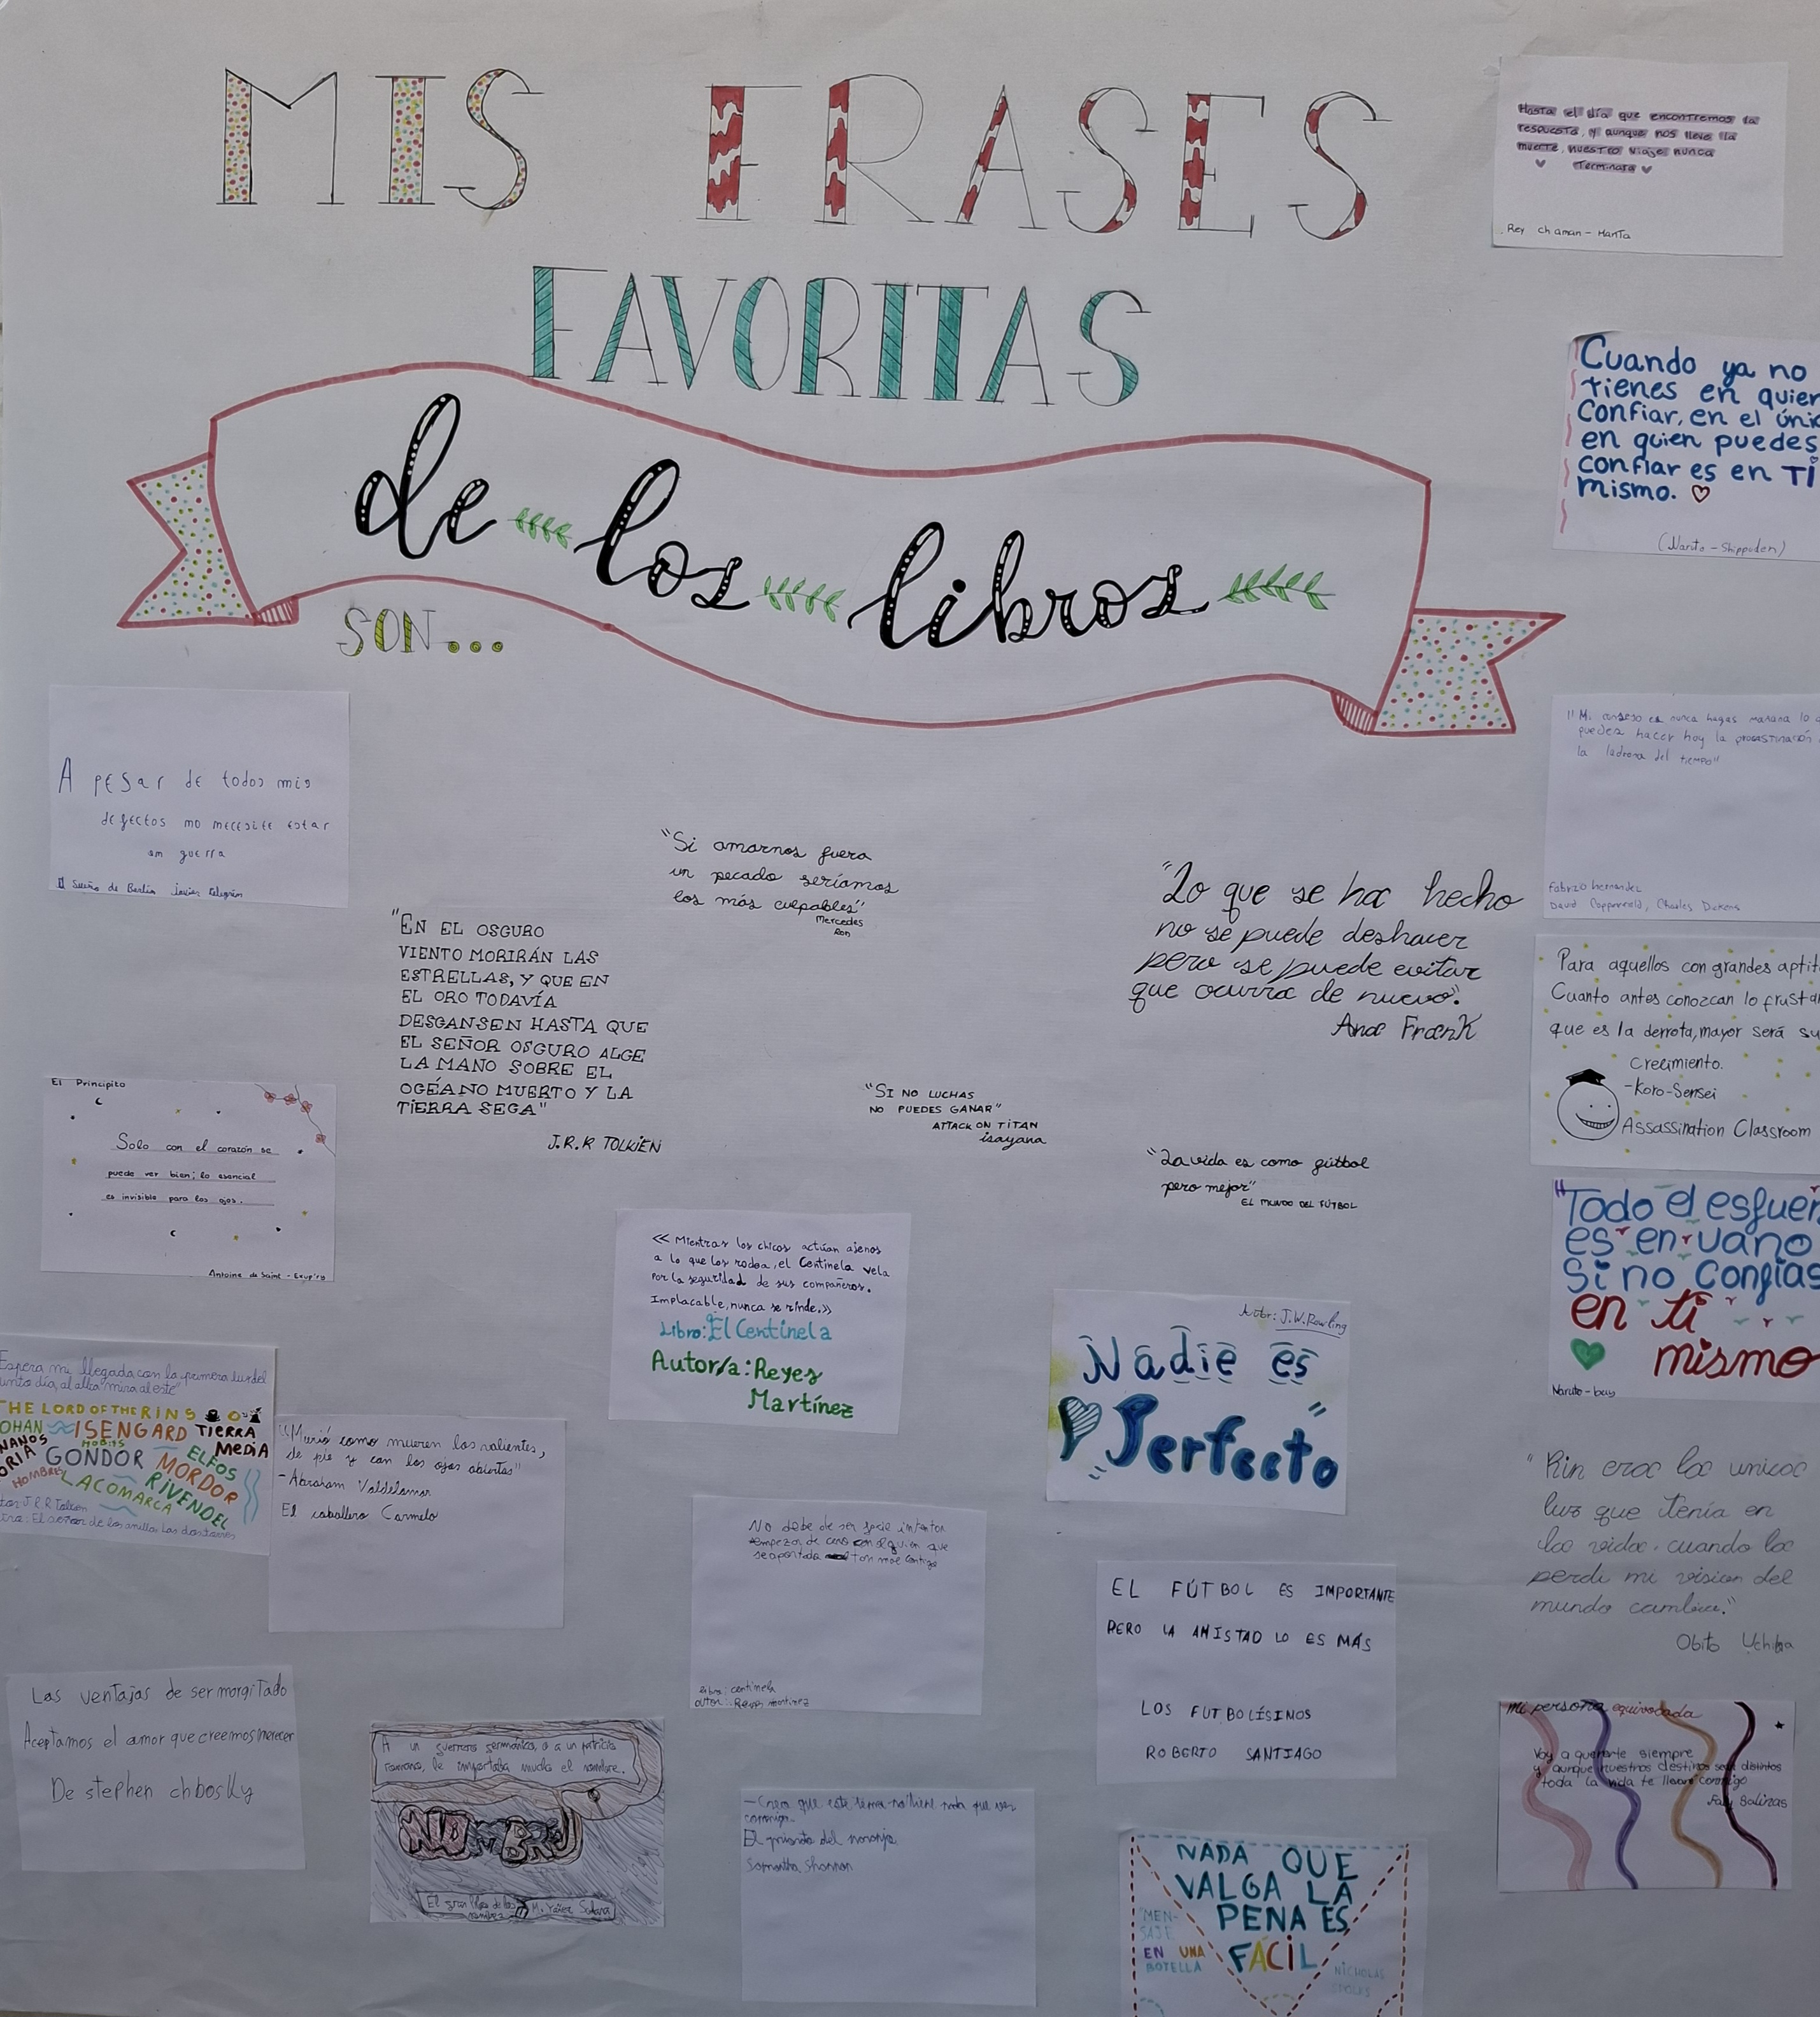 MIS FRASES
FAVORITAS
de los libros
SON...
Hasta el día que encontremos la
respuesta, y aunque nos lleve la
muerte, nuestro viaje nunca
Terminara
Rey chaman - Manta
Cuando ya no
tienes en quien
confiar, en el únic
en quien puedes
confiar es en TI
mismo.
(Naruto - Shippuden)
"Mi consejo es nunca hagas mañana lo
puedes hacer hoy la procastinación
la ladrona del tiempo"
Fabrizo hernandez
David Copperfield, Charles Dickens
A pesar de todos mis
defectos no necesite estar
en guerra
El Sueño de Berlín Javier
"Si amarnos fuera
un pecado seríamos
los más culpables"
Mercedes
Ron
"EN EL OSCURO
VIENTO MORIRÁN LAS
ESTRELLAS, Y QUE EN
EL ORO TODAVÍA
DESCANSEN HASTA QUE
EL SEÑOR OSCURO ALCE
LA MANO SOBRE EL
OCÉANO MUERTO Y LA
TIERRA SECA"
J.R.R TOLKIEN
"Lo que se ha hecho
no se puede deshacer
pero se puede evitar
que ocurra de nuevo".
Ana Frank
Para aquellos con grandes aptit
Cuanto antes conozcan lo frustan
que es la derrota, mayor será su
crecimiento.
-Koro-Sensei
Assassination Classroom
"SI NO LUCHAS
NO PUEDES GANAR"
ATTACK ON TITAN
isayana
"La vida es como fútbol
pero mejor"
EL MUNDO DEL FÚTBOL
El Principito
Solo con el corazón se
puede ver bien; lo esencial
es invisible para los ojos.
Antoine de Saint - Exup'ro
"Todo el esfuer
es en vano
Si no confias
en ti
mismo
Naruto - 
<< Mientras los chicos actúan ajenos
a lo que los rodea, el Centinela vela
por la seguridad de sus compañeros.
Implacable, nunca se rinde.>>
Libro: El Centinela
Autor/a: Reyes
Martínez
Autor: J.W.Rowling
Nadie es
Perfecto"
Espera mi llegada con la primera luz del
unto día, al alba mira al este"
THE LORD OF THE RINGS
OHAN ISENGARD TIERRA
MEDIA
NANOS
ORIA
HOMBRES
HOBITS
GONDOR MORDOR
ELFOS
LACOMARCA RIVENDEL
J.R.R Tolkien
: El señor de los anillos Las dos torres
"Murió como mueren los valientes,
de pie y con los ojos abiertos"
-Abraham Valdelomar
El caballero Carmelo
"Rin era la unica
luz que tenía en
la vida. cuando la
perdi mi vision del
mundo cambio."
Obito Uchiha
No debe de ser facil intentar
empezar de cero con alguien que
se a portado tan mal contigo
Libro: centinela
autor: Reyes Martinez
EL FÚTBOL ES IMPORTANTE
PERO LA AMISTAD LO ES MÁS
LOS FUTBOLÍSINOS
ROBERTO SANTIAGO
Las ventajas de ser margitado
Aceptamos el amor que creemos merecer
De stephen chbosky
A un guerrero germánico, o a un patricio
romano, le importaba mucho el nombre.
NOMBRE
El gran libro de los
nombres
mi persona equivocada
Voy a quererte siempre
y aunque nuestros destinos sean distintos
toda la vida te llevare conmigo
Salinas
- Creo que este tema no tiene nada que ver
conmigo.
El priorato del naranjo
Samantha Shannon
NADA QUE
VALGA LA
PENA ES
FÁCIL
MEN-
SAJE
EN UNA
BOTELLA
NICHOLAS